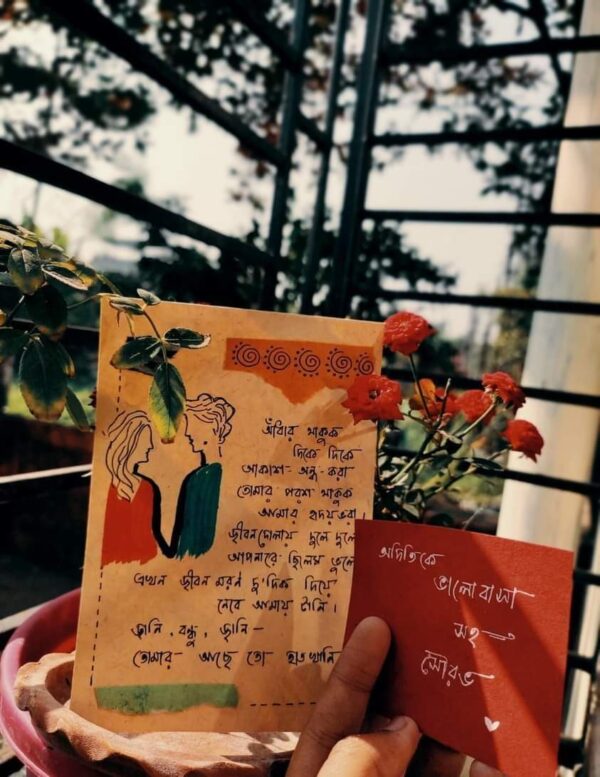 আঁধার থাকুক
দিকে দিকে
আকাশ-অন্ধ-করা
তোমার পরশ থাকুক
আমার হৃদয়ভরা
জীবনদোলায় দুলে দুলে
আপনারে ছিলেম ভুলে
এখন জীবন মরণ দু'দিক দিয়ে
নেবে আমায় টানি।
জানি, বন্ধু, জানি-
তোমার আছে তো হাতখানি
অদিতিকে
ভালোবাসা
সহ
সৌরভ